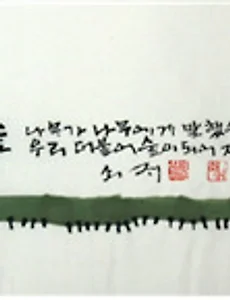 나무가 나무에게 말했
우리 더불어 숲이 되어
쇠 귀